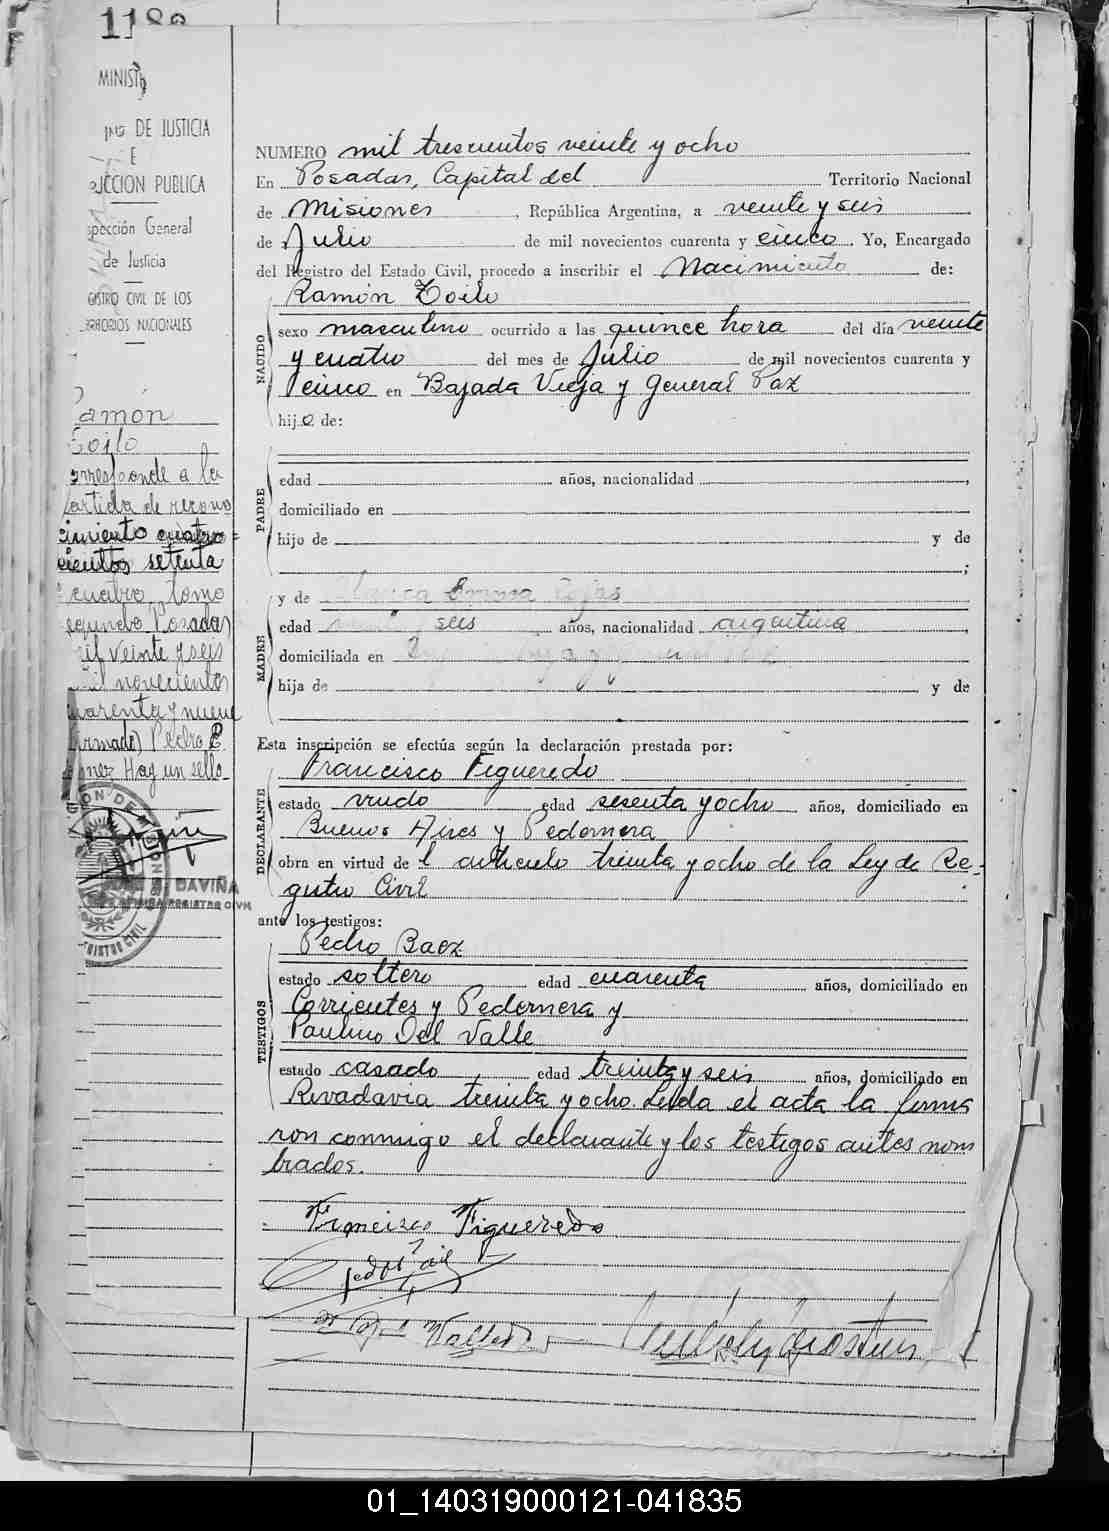 1188
MINIST
DE JUSTICIA
E
UCCION PUBLICA
spección General
de Justicia
GISTRO CIVIL DE LOS
RRITORIOS NACIONALES
Ramón
Zoilo
orresponde a la
Partida de recono
cimiento cuatro=
cientos setenta
cuatro, tomo
segundo Posadas
mil veinte y seis
mil novecientos
cuarenta y nueve
(firmado) Pedro E.
Hay un sello-
DAVIÑA
REGISTRO CIVIL
NUMERO mil trescientos veinte y ocho
En Posadas, Capital del Territorio Nacional
de Misiones, República Argentina, a veinte y seis
de Julio de mil novecientos cuarenta y cinco. Yo, Encargado
del Registro del Estado Civil, procedo a inscribir el Nacimiento de:
Ramón Zoilo
NACIDO
sexo masculino ocurrido a las quince hora del día veinte
y cuatro del mes de Julio de mil novecientos cuarenta y
cinco en Bajada Vieja y General Paz
hijo de:
PADRE
edad años, nacionalidad ,
domiciliado en
hijo de y de
;
MADRE
y de Blanca Ramona Rojas
edad veinte y seis años, nacionalidad argentina,
domiciliada en
hija de y de
Esta inscripción se efectúa según la declaración prestada por:
DECLARANTE
Francisco Figueredo
estado viudo edad sesenta y ocho años, domiciliado en
Buenos Aires y Pedernera
obra en virtud del artículo treinta y ocho de la Ley de Re-
gistro Civil
ante los testigos:
TESTIGOS
Pedro Baez
estado soltero edad cuarenta años, domiciliado en
Corrientes y Pedernera y
Paulino Del Valle
estado casado edad treinta y seis años, domiciliado en
Rivadavia treinta y ocho. Leida el acta la firma
ron conmigo el declarante y los testigos antes nom
brados.
Francisco Figueredo
01_140319000121-041835